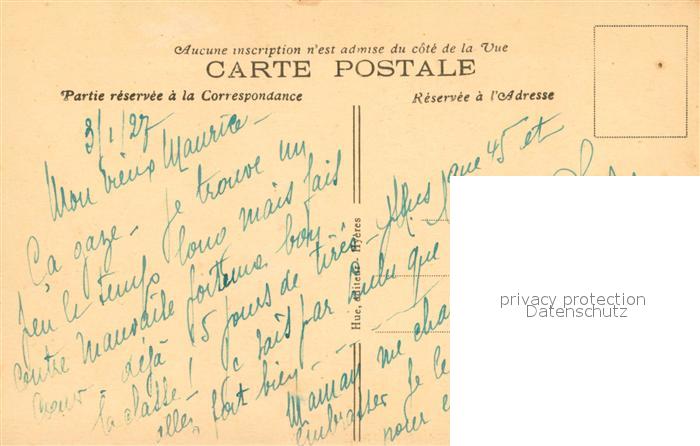 Aucune inscription n'est admise du côté de la Vue
CARTE POSTALE
Partie réservée à la Correspondance
Réservée à l'Adresse
3/1/27
Mon vieux Maurice -
Ça gaze - je trouve un
peu le temps long mais fais
contre mauvaise fortune bon
coeur - déjà 15 jours de tirés - plus que 45 et
la classe ! je sais par Lulu que
allez fort bien -
Maman me cha
embrasser je le
pour
Hue, éditeur - Hyères
privacy protection
Datenschutz